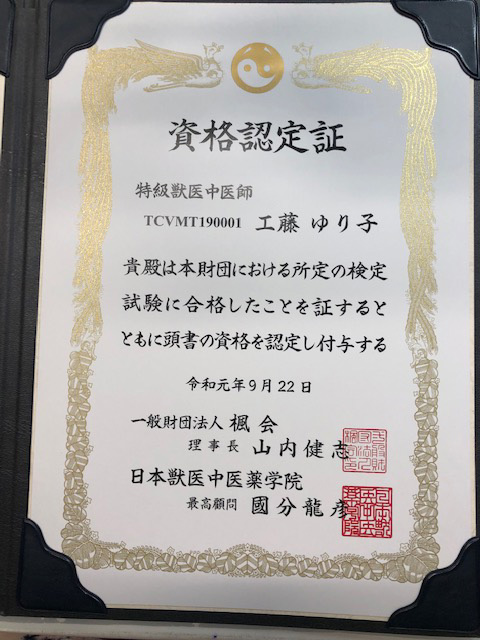 資格認定証
特級獣医中医師
TCVMT190001 工藤 ゆり子
貴殿は本財団における所定の検定
試験に合格したことを証すると
ともに頭書の資格を認定し付与する
令和元年9月22日
一般財団法人 楓会
理事長 山内健志
日本獣医中医薬学院
最高顧問 國分龍彦